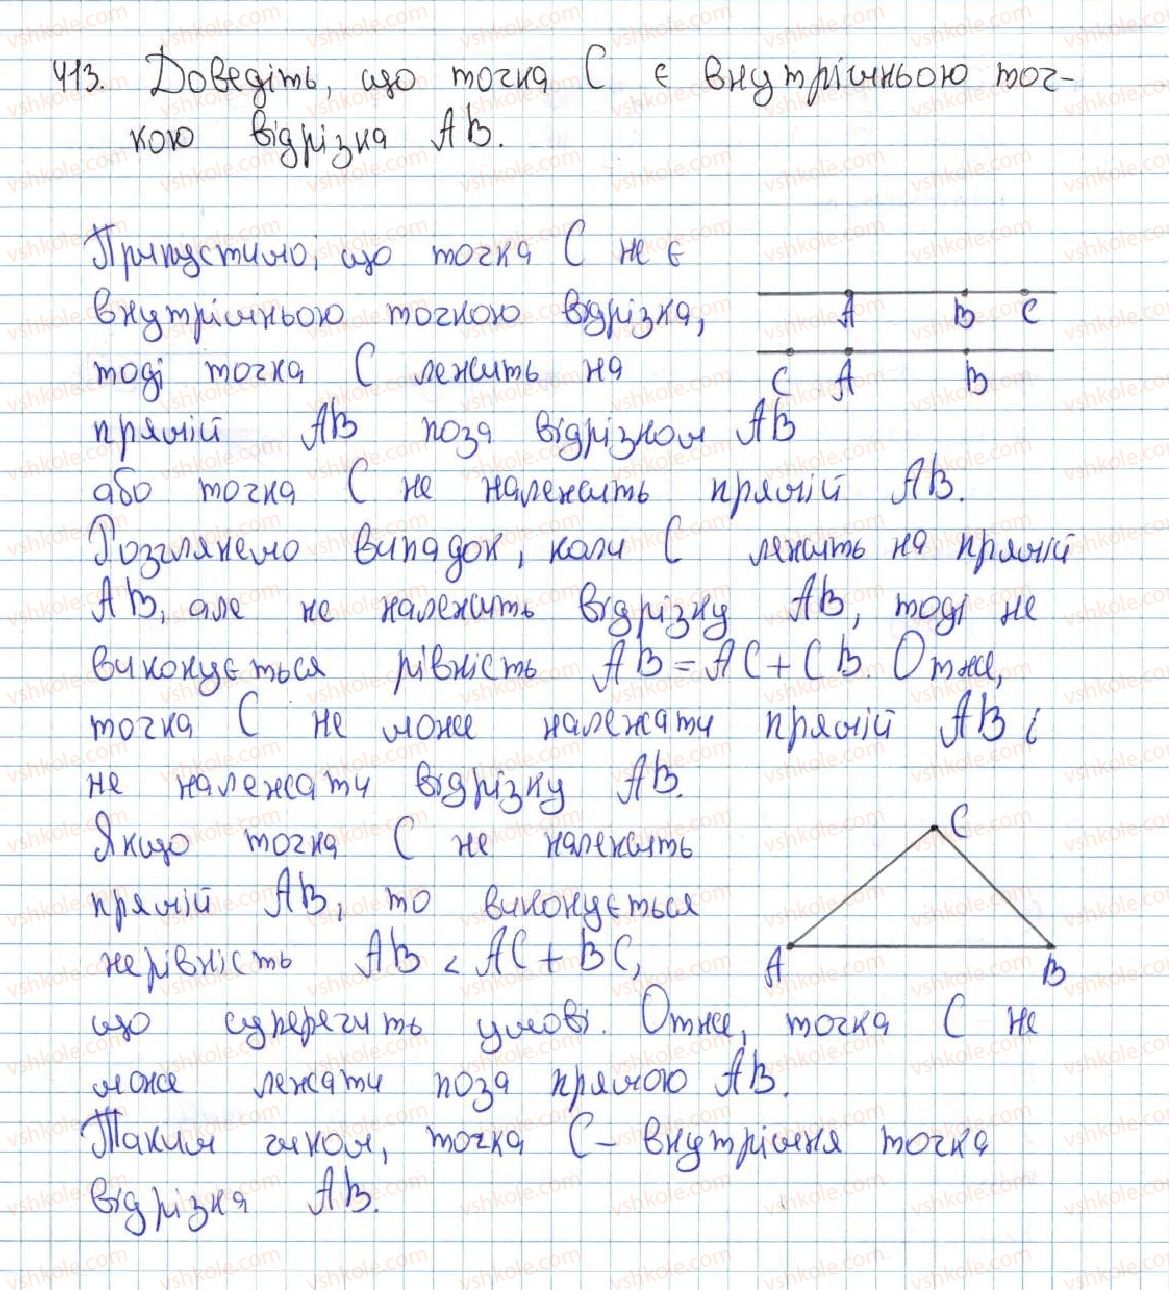 413. Доведіть, що точка C є внутрішньою точ-
кою відрізка AB.
Припустимо, що точка C не є
внутрішньою точкою відрізка,
A B C
тоді точка C лежить на
C A B
прямій AB поза відрізком AB
або точка C не належить прямій AB.
Розглянемо випадок, коли C лежить на прямій
AB, але не належить відрізку AB, тоді не
виконується рівність AB = AC + CB. Отже,
точка C не може належати прямій AB і
не належати відрізку AB.
Якщо точка C не належить
C
прямій AB, то виконується
нерівність AB < AC + BC,
A B
що суперечить умові. Отже, точка C не
може лежати поза прямою AB.
Таким чином, точка C – внутрішня точка
відрізка AB.
vshkole.com